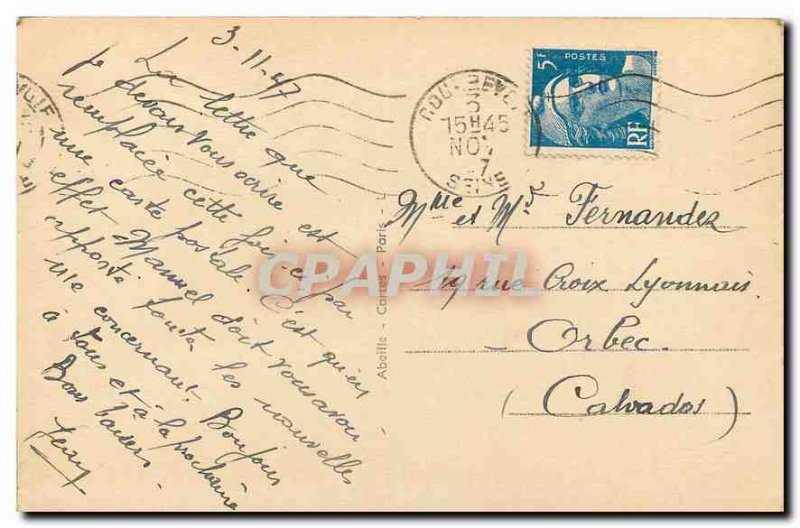 3-11-47
La lettre que
je devais vous écrire est
remplacée cette fois-ci par
une carte postale. C'est qu'en
effet Manuel doit vous avoir
apporté toutes les nouvelles
me concernant. Bonjour
à tous et à la prochaine
Bons baisers.
Jean
5F POSTES
RF
15H45
NOV
Mme et Mr Fernandez
19 rue Croix Lyonnais.
Orbec.
(Calvados)
Abeille - Cartes - Paris - L
CPAPHIL